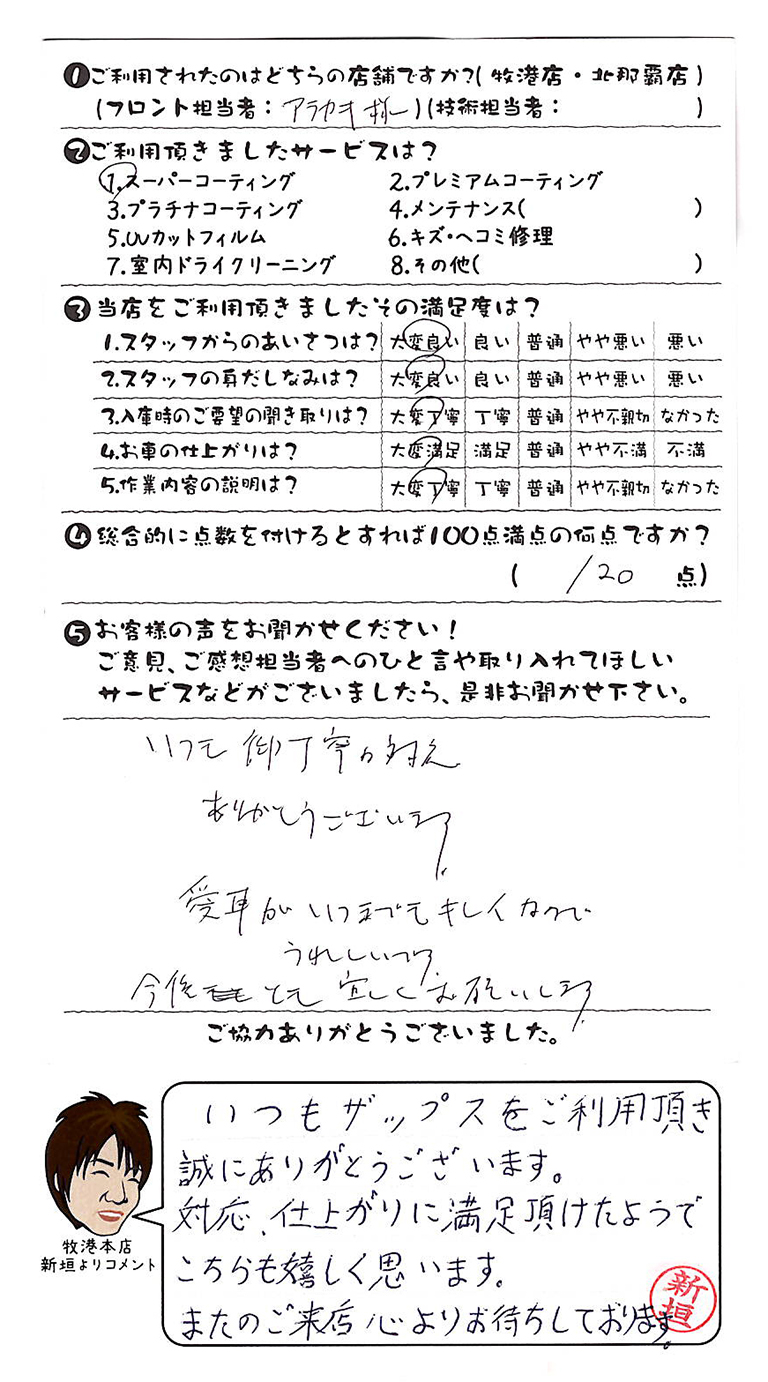 ❶ご利用されたのはどちらの店舗ですか?(牧港店・北那覇店)
(フロント担当者:アラカキ様)(技術担当者: )
❷ご利用頂きましたサービスは?
1.スーパーコーティング 2.プレミアムコーティング
3.プラチナコーティング 4.メンテナンス( )
5.UVカットフィルム 6.キズ・ヘコミ修理
7.室内ドライクリーニング 8.その他( )
❸当店をご利用頂きましたその満足度は?
1.スタッフからのあいさつは? 大変良い 良い 普通 やや悪い 悪い
2.スタッフの身だしなみは? 大変良い 良い 普通 やや悪い 悪い
3.入庫時のご要望の聞き取りは? 大変丁寧 丁寧 普通 やや不親切 なかった
4.お車の仕上がりは? 大変満足 満足 普通 やや不満 不満
5.作業内容の説明は? 大変丁寧 丁寧 普通 やや不親切 なかった
❹総合的に点数を付けるとすれば100点満点の何点ですか?
( /20 点)
❺お客様の声をお聞かせください!
ご意見、ご感想担当者へのひと言や取り入れてほしい
サービスなどがございましたら、是非お聞かせ下さい。
いつも御丁寧な対応
ありがとうございます
愛車がいつまでもキレイなので
うれしいです
今後とも宜しくお願いします
ご協力ありがとうございました。
いつもザップスをご利用頂き
誠にありがとうございます。
対応、仕上がりに満足頂けたようで
こちらも嬉しく思います。
またのご来店心よりお待ちしております。
牧港本店
新垣よりコメント
新垣